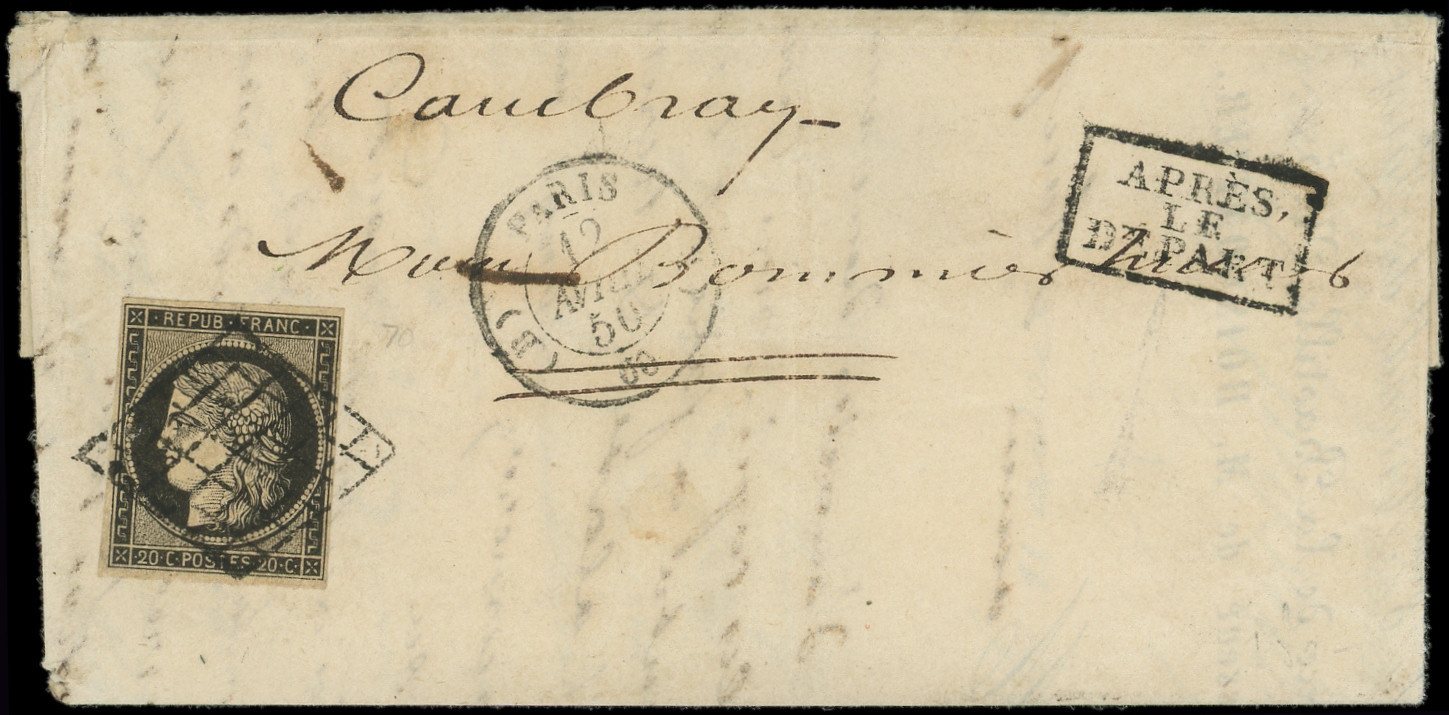 Cambray
APRÈS
LE
DÉPART
PARIS
12
AVRIL
50
(B)
60
Bommier
REPUB·FRANC·
70
20·C·POSTES·20·C·